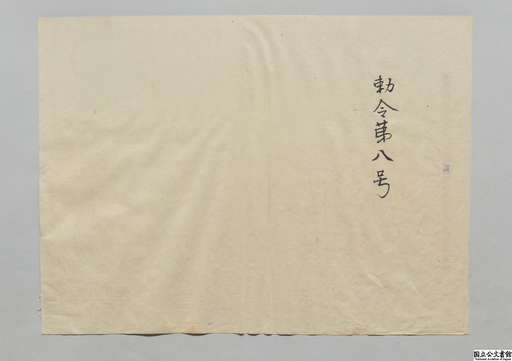 勅令第八号
国立公文書館
National Archives of Japan